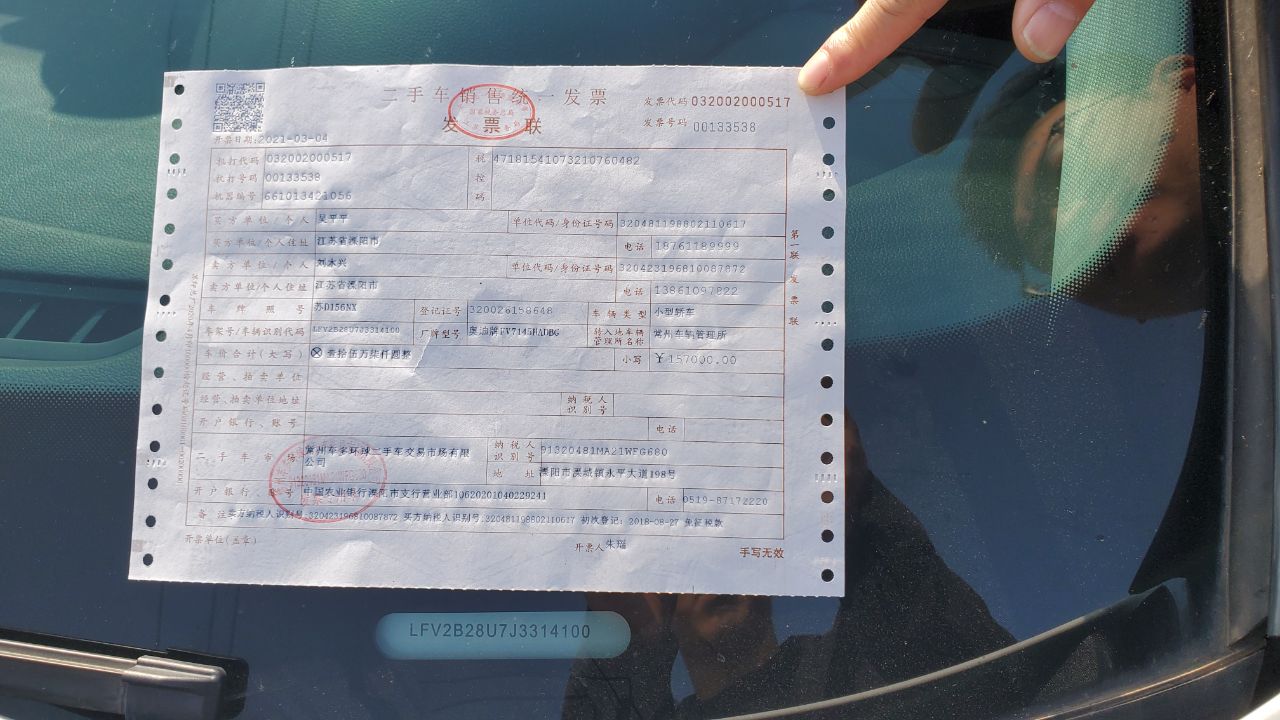 二手车销售统一发票
发票联
发票代码 032002000517
发票号码 00133538
开票日期:2021-03-04
机打代码 032002000517
机打号码 00133538
机器编号 661013421056
税控码 47181541073210760482
买方单位/个人 吴平平 单位代码/身份证号码 320481198802110617
买方单位/个人住址 江苏省溧阳市 电话 18761189999
卖方单位/个人 刘木兴 单位代码/身份证号码 320423196810087872
卖方单位/个人住址 江苏省溧阳市 电话 13861097822
车牌照号 苏D156NX 登记证号 320026158648 车辆类型 小型轿车
车架号/车辆识别代码 LFV2B28U7J3314100 厂牌型号 奥迪牌FV7145HADBG 转入地车辆管理所名称 常州车辆管理所
车价合计(大写) ⊗ 壹拾伍万柒仟圆整 小写 ¥157000.00
经营、拍卖单位
经营、拍卖单位地址 纳税人识别号
开户银行、账号 电话
二手车市场 常州车多环球二手车交易市场有限公司 纳税人识别号 91320481MA21WFG680
地址 溧阳市溧城镇永平大道198号
开户银行、账号 中国农业银行溧阳市支行营业部10620201040229241 电话 0519-87172220
备注 卖方纳税人识别号:320423196810087872 买方纳税人识别号:320481198802110617 初次登记:2018-08-27 免征税款
开票单位(盖章) 开票人 朱瑶 手写无效
第一联 发票联
LFV2B28U7J3314100